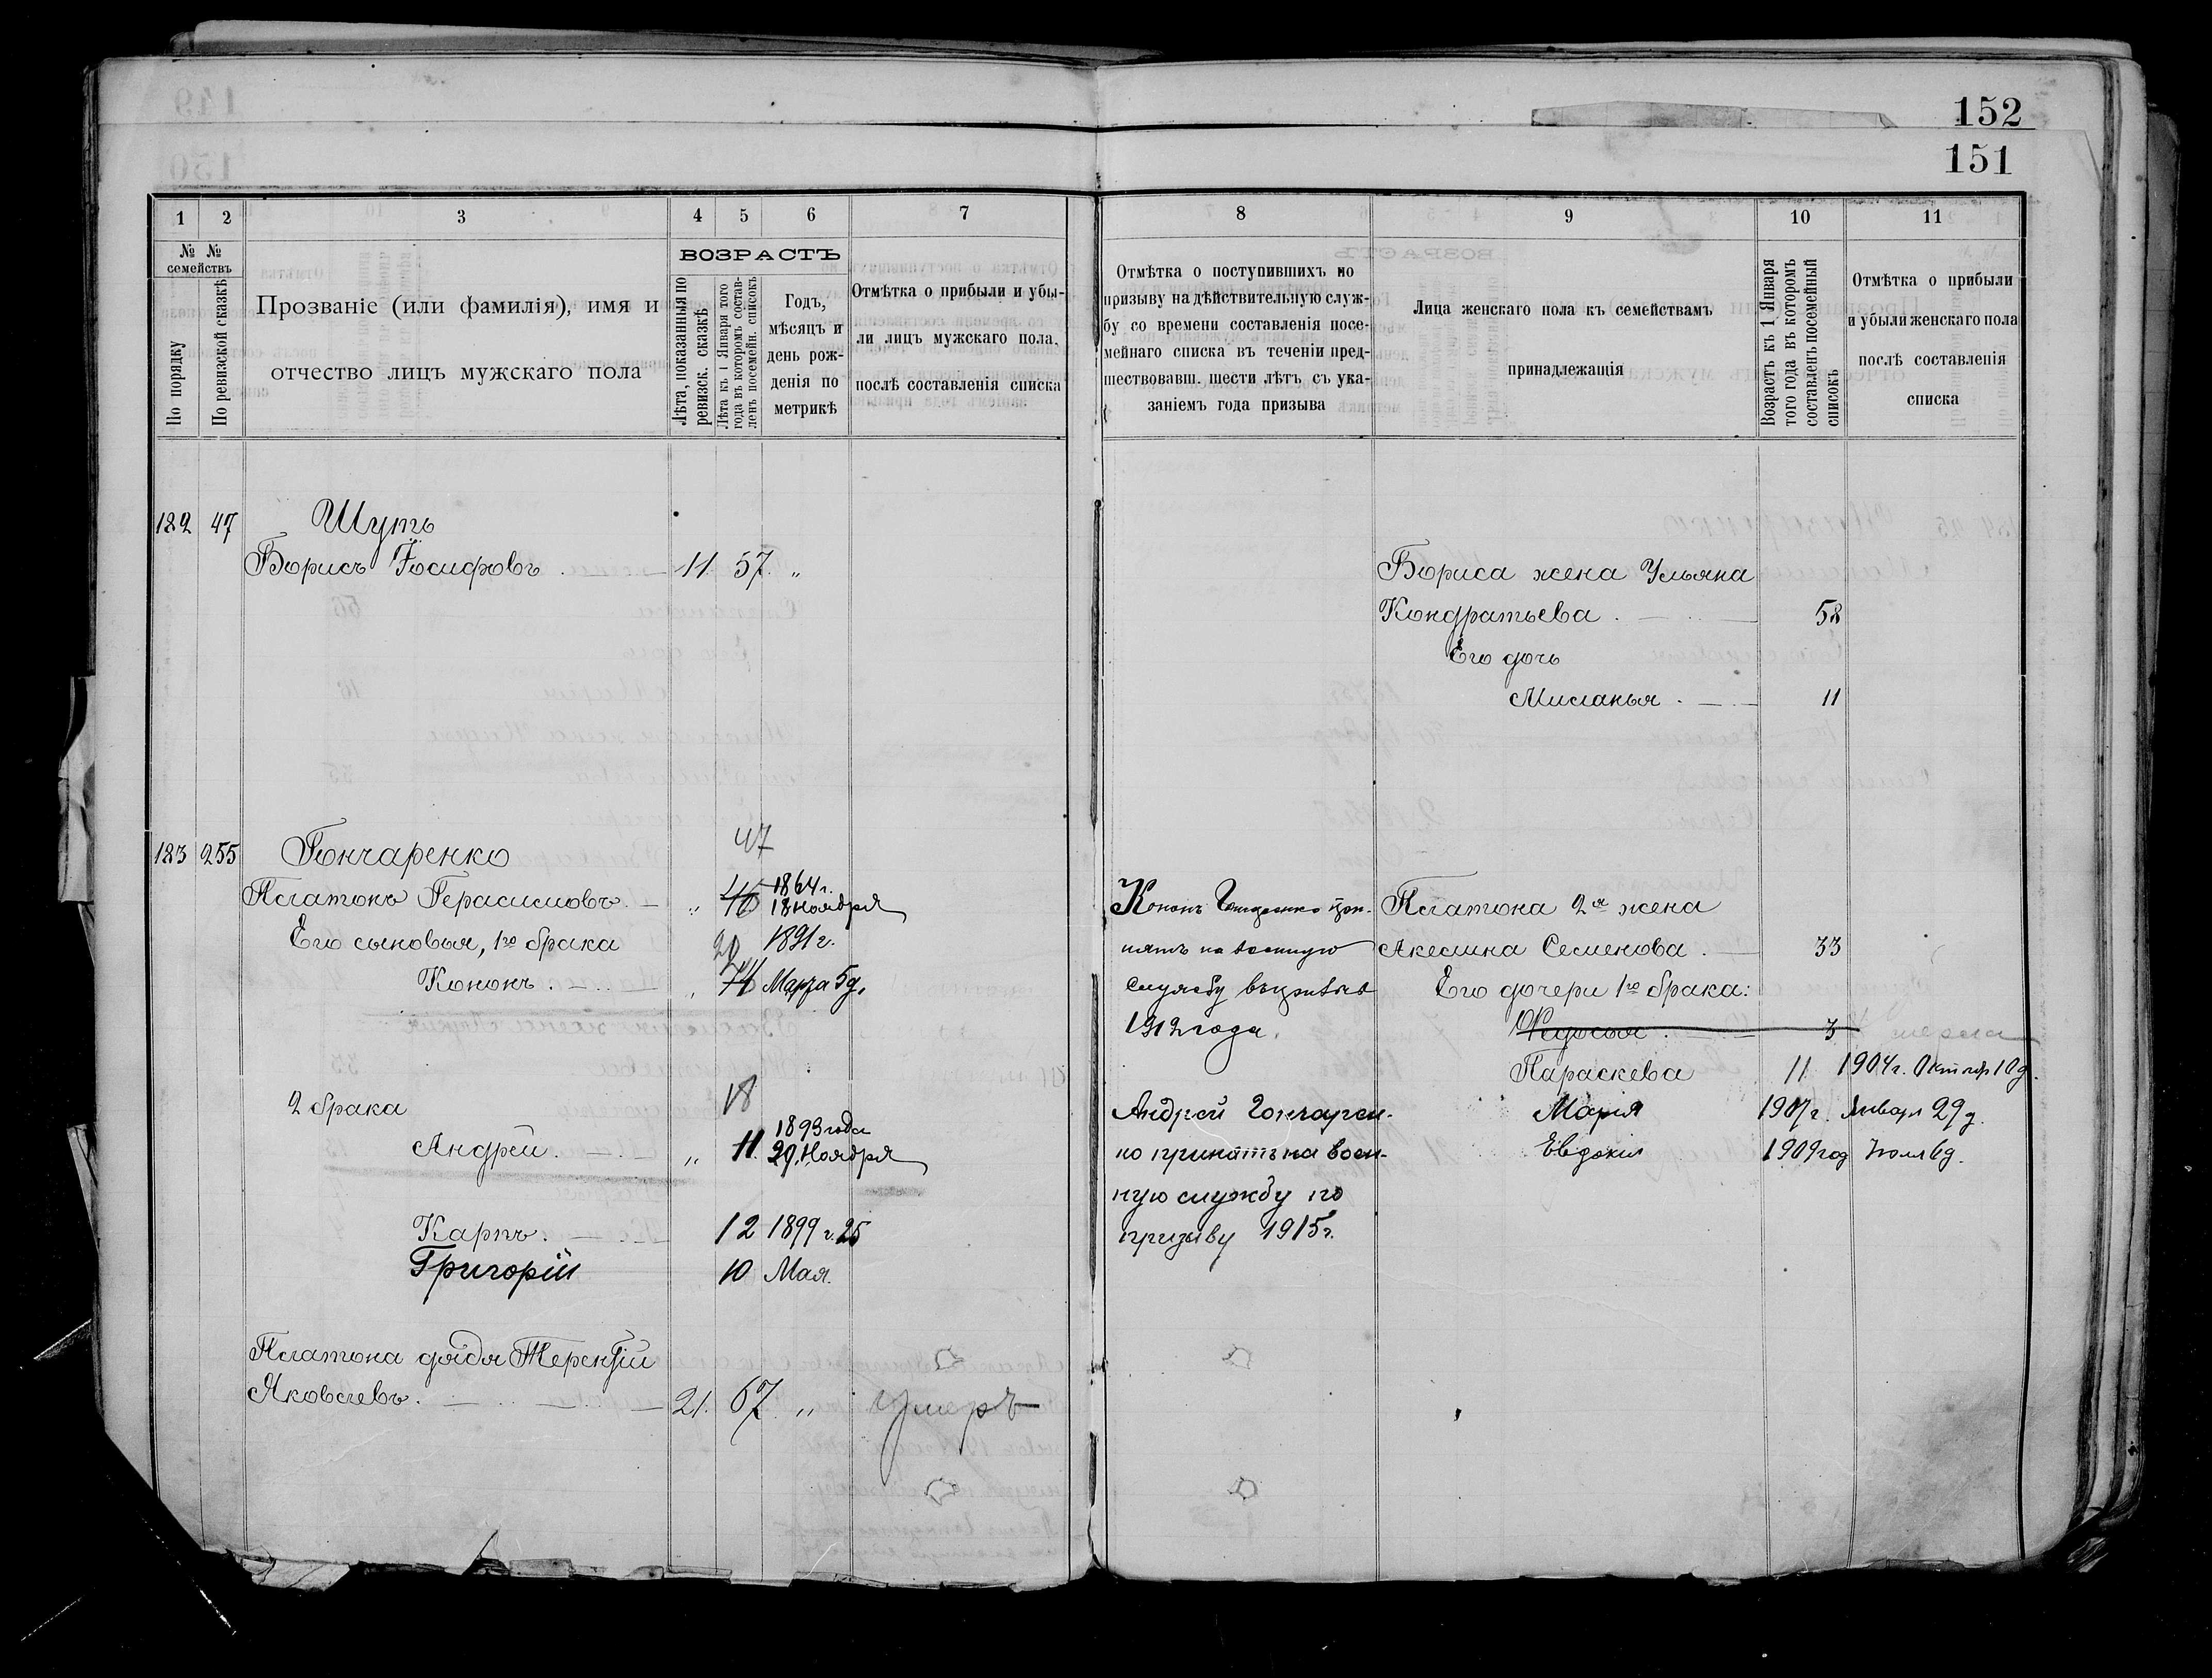 152
151
1 2 3 4 5 6 7
№ № семействъ
По порядку
По ревизской сказкѣ
Прозваніе (или фамилія), имя и
отчество лицъ мужскаго пола
ВОЗРАСТЪ
Лѣта, показанныя по
ревизск. сказкѣ
Лѣта къ 1 Января того
года въ которомъ состав-
ленъ посемейн. списокъ
Годъ,
мѣсяцъ и
день рож-
денія по
метрикѣ
Отмѣтка о прибыли и убы-
ли лицъ мужскаго пола,
послѣ составленія списка
8 9 10 11
Отмѣтка о поступившихъ по
призыву на дѣйствительную служ-
бу со времени составленія посе-
мейнаго списка въ теченіи пред-
шествовавш. шести лѣтъ съ ука-
заніемъ года призыва
Лица женскаго пола къ семействамъ
принадлежащія
Возрастъ къ 1 Января
того года въ которомъ
составленъ посемейный
списокъ
Отмѣтка о прибыли
и убыли женскаго пола
послѣ составленія
списка
182 47 Шуть
Борисъ Іосифовъ 11 57 "
Бориса жена Ульяна
Кондратьева 58
Его дочь
Миланья 11
183 255 Гончаренко 47
Платонъ Герасимовъ " 46 1864 г.
18 Ноября
Его сыновья, 1го брака 20 1891 г.
Кононъ " Марта 5 д.
2 брака 18
Андрей " 11 1893 года
29 Ноября
Карпъ 12 1899 г. 25
Григорій 10 Мая.
Платона дядя Терентій
Яковлевъ 21. 67 " умеръ
Кононъ Гончаренко при-
нятъ на военную
службу въ призывъ
1912 года.
Андрей Гончарен-
ко принятъ на воен-
ную службу по
призыву 1915 г.
Платона 2я жена
Акелина Семенова 33
Его дочери 1го брака:
3 умерла
Параскева 11 1904 г. Октябр 10 д.
Марія 1907 г. Января 29 д.
Евдокія 1909 год